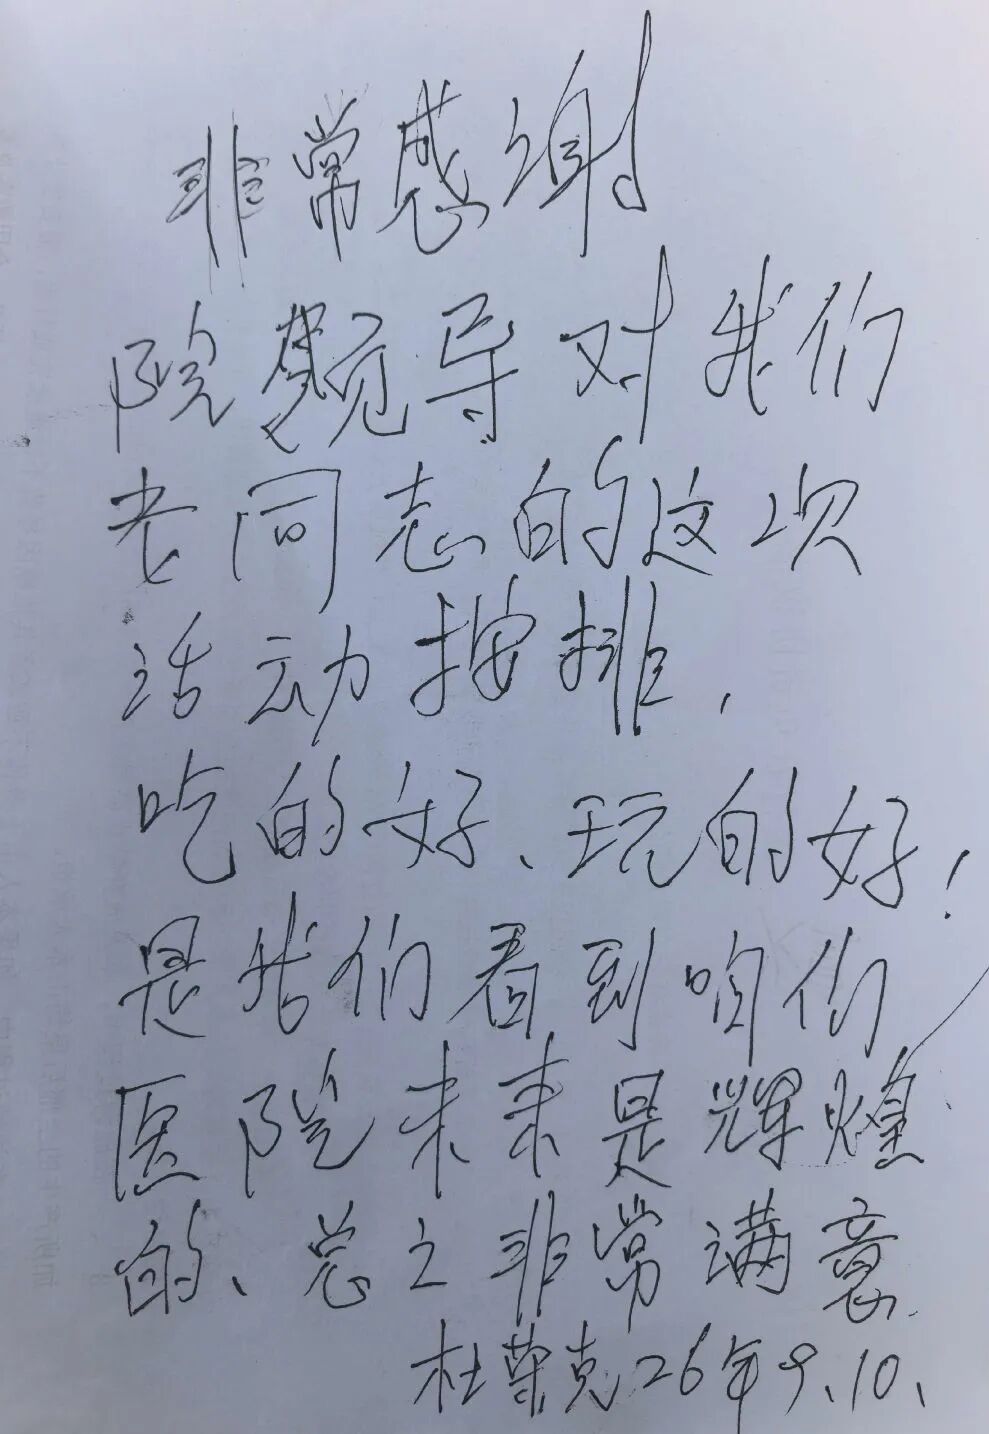 非常感谢
院领导对我们
老同志的这次
活动按排，
吃的好、玩的好！
是我们看到咱们
医院未来是辉煌
的、总之非常满意
杜荣克26年9.10、